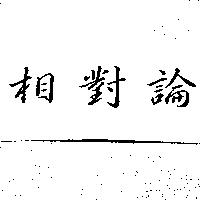 相對論